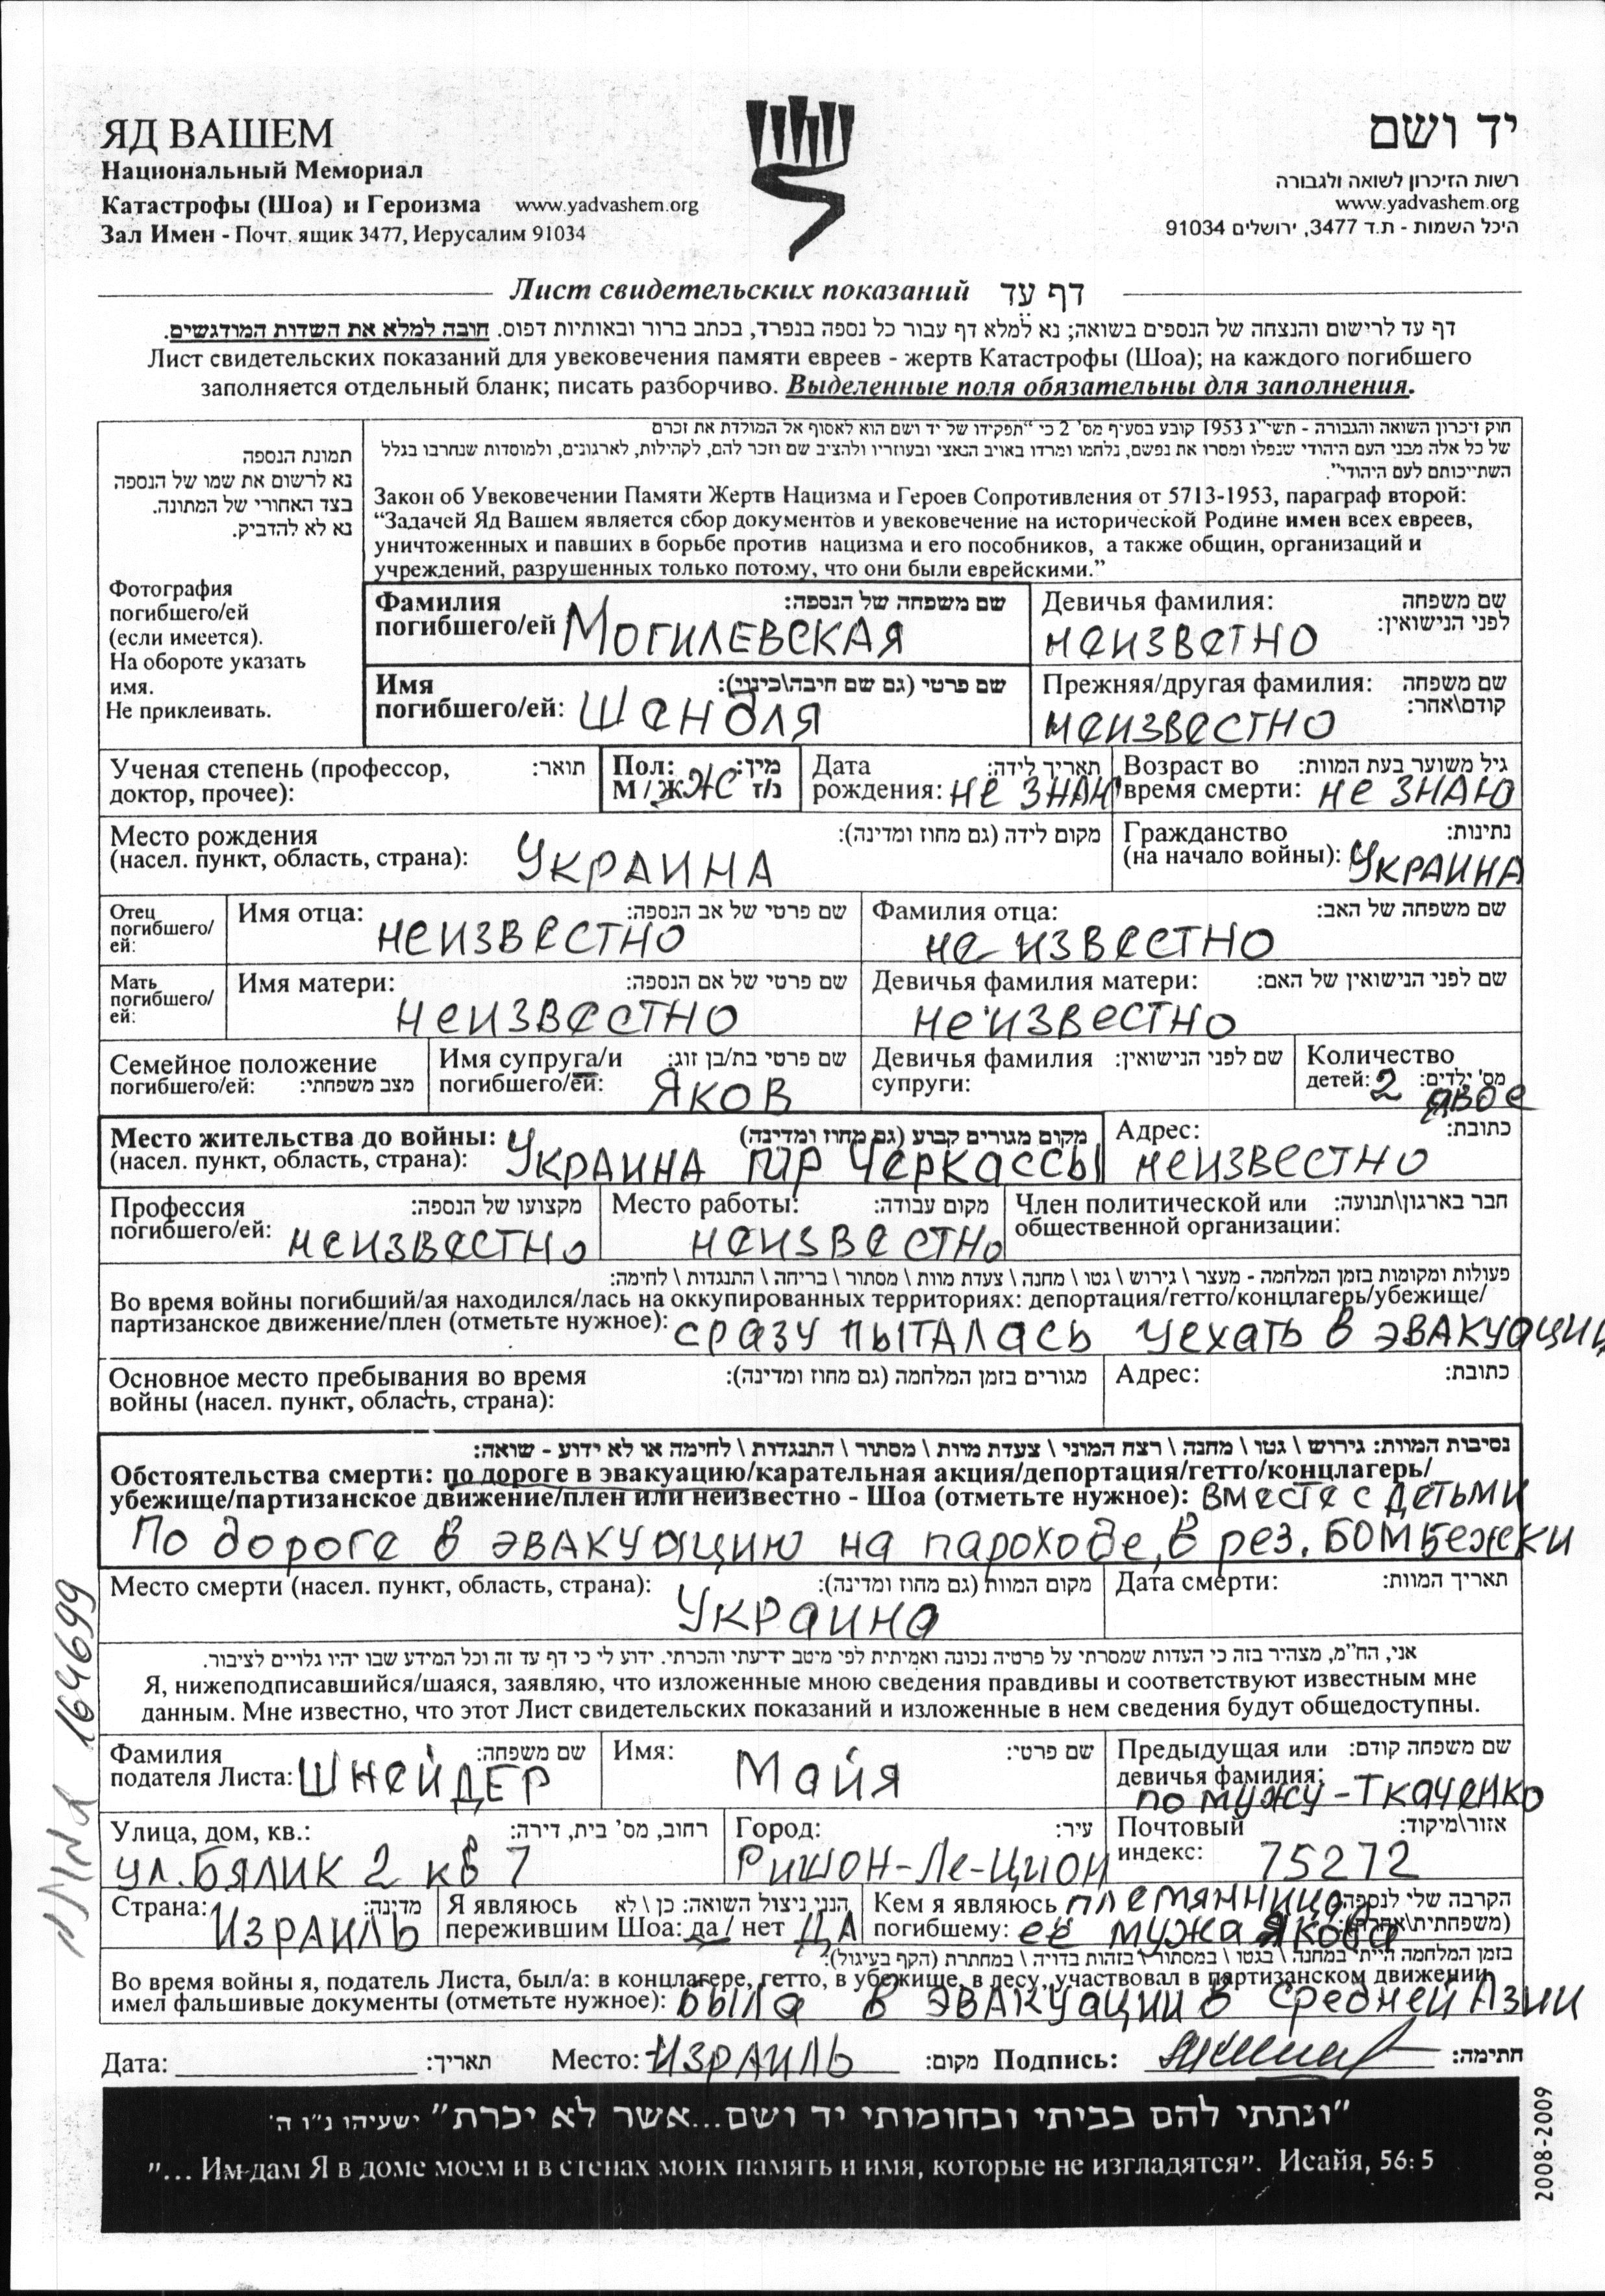 ЯД ВАШЕМ
Национальный Мемориал
Катастрофы (Шоа) и Героизма www.yadvashem.org
Зал Имен - Почт. ящик 3477, Иерусалим 91034
יד ושם
רשות הזיכרון לשואה ולגבורה
www.yadvashem.org
היכל השמות - ת.ד 3477, ירושלים 91034
Лист свидетельских показаний דף עד
דף עד לרישום והנצחה של הנספים בשואה; נא למלא דף עבור כל נספה בנפרד, בכתב ברור ובאותיות דפוס. חובה למלא את השדות המודגשים.
Лист свидетельских показаний для увековечения памяти евреев - жертв Катастрофы (Шоа); на каждого погибшего
заполняется отдельный бланк; писать разборчиво. Выделенные поля обязательны для заполнения.
תמונת הנספה
נא לרשום את שמו של הנספה
בצד האחורי של המתונה.
נא לא להדביק.
Фотография
погибшего/ей
(если имеется).
На обороте указать
имя.
Не приклеивать.
חוק זיכרון השואה והגבורה - תשי"ג 1953 קובע בסעיף מס' 2 כי "תפקידו של יד ושם הוא לאסוף אל המולדת את זכרם
של כל אלה מבני העם היהודי שנפלו ומסרו את נפשם, נלחמו ומרדו באויב הנאצי ובעוזריו ולהציב שם וזכר להם, לקהילות, לארגונים, ולמוסדות שנחרבו בגלל
השתייכותם לעם היהודי".
Закон об Увековечении Памяти Жертв Нацизма и Героев Сопротивления от 5713-1953, параграф второй:
"Задачей Яд Вашем является сбор документов и увековечение на исторической Родине имен всех евреев,
уничтоженных и павших в борьбе против нацизма и его пособников, а также общин, организаций и
учреждений, разрушенных только потому, что они были еврейскими."
Фамилия שם משפחה של הנספה:
погибшего/ей Могилевская
Девичья фамилия: שם משפחה
לפני הנישואין:
неизвестно
Имя שם פרטי (גם שם חיבה\כינוי):
погибшего/ей: Шендля
Прежняя/другая фамилия: שם משפחה
קודם\אחר:
неизвестно
Ученая степень (профессор, תואר:
доктор, прочее):
Пол: מין:
М / Ж Ж ז/נ
Дата תאריך לידה:
рождения: не знаю
Возраст во גיל משוער בעת המוות:
время смерти: не знаю
Место рождения מקום לידה (גם מחוז ומדינה):
(насел. пункт, область, страна): Украина
Гражданство נתינות:
(на начало войны): Украина
Отец
погибшего/
ей:
Имя отца: שם פרטי של אב הנספה:
неизвестно
Фамилия отца: שם משפחה של האב:
не известно
Мать
погибшего/
ей:
Имя матери: שם פרטי של אם הנספה:
неизвестно
Девичья фамилия матери: שם לפני הנישואין של האם:
неизвестно
Семейное положение
погибшего/ей: מצב משפחתי:
Имя супруга/и שם פרטי בת/בן זוג:
погибшего/ей: Яков
Девичья фамилия שם לפני הנישואין:
супруги:
Количество
детей: 2 מס' ילדים:
двое
Место жительства до войны: מקום מגורים קבוע (גם מחוז ומדינה)
(насел. пункт, область, страна): Украина гор Черкассы
Адрес: כתובת:
неизвестно
Профессия מקצועו של הנספה:
погибшего/ей: неизвестно
Место работы: מקום עבודה:
неизвестно
Член политической или חבר בארגון\תנועה:
общественной организации:
פעולות ומקומות בזמן המלחמה - מעצר \ גירוש \ גטו \ מחנה \ צעדת מוות \ מסתור \ בריחה \ התנגדות \ לחימה:
Во время войны погибший/ая находился/лась на оккупированных территориях: депортация/гетто/концлагерь/убежище/
партизанское движение/плен (отметьте нужное): сразу пыталась уехать в эвакуацию
Основное место пребывания во время מגורים בזמן המלחמה (גם מחוז ומדינה):
войны (насел. пункт, область, страна):
Адрес: כתובת:
נסיבות המוות: גירוש \ גטו \ מחנה \ רצח המוני \ צעדת מוות \ מסתור \ התנגדות \ לחימה או לא ידוע - שואה:
Обстоятельства смерти: по дороге в эвакуацию/карательная акция/депортация/гетто/концлагерь/
убежище/партизанское движение/плен или неизвестно - Шоа (отметьте нужное): вместе с детьми
По дороге в эвакуацию на пароходе, в рез. бомбежки
Место смерти (насел. пункт, область, страна): מקום המוות (גם מחוז ומדינה):
Украина
Дата смерти: תאריך המוות:
אני, הח"מ, מצהיר בזה כי העדות שמסרתי על פרטיה נכונה ואמיתית לפי מיטב ידיעתי והכרתי. ידוע לי כי דף עד זה וכל המידע שבו יהיו גלויים לציבור.
Я, нижеподписавшийся/шаяся, заявляю, что изложенные мною сведения правдивы и соответствуют известным мне
данным. Мне известно, что этот Лист свидетельских показаний и изложенные в нем сведения будут общедоступны.
Фамилия שם משפחה:
подателя Листа: Шнейдер
Имя: שם פרטי:
Майя
Предыдущая или שם משפחה קודם:
девичья фамилия:
по мужу - Ткаченко
Улица, дом, кв.: רחוב, מס' בית, דירה:
ул. Бялик 2 кв 7
Город: עיר:
Ришон-Ле-Цион
Почтовый אזור\מיקוד:
индекс: 75272
Страна: מדינה:
Израиль
Я являюсь הנני ניצול השואה: כן \ לא
пережившим Шоа: да / нет да
Кем я являюсь племянница הקרבה שלי לנספה
погибшему: её мужа Якова (משפחתית\אחר):
בזמן המלחמה הייתי במחנה \ בגטו \ במסתור \ בזהות בדויה \ במחתרת (הקף בעיגול):
Во время войны я, податель Листа, был/а: в концлагере, гетто, в убежище, в лесу, участвовал в партизанском движении,
имел фальшивые документы (отметьте нужное): была в эвакуации в Средней Азии
Дата: תאריך: Место: Израиль מקום: Подпись: חתימה:
"ונתתי להם בביתי ובחומותי יד ושם...אשר לא יכרת" ישעיהו נ"ו ה'
"... Им дам Я в доме моем и в стенах моих память и имя, которые не изгладятся". Исайя, 56: 5
164699
2008-2009